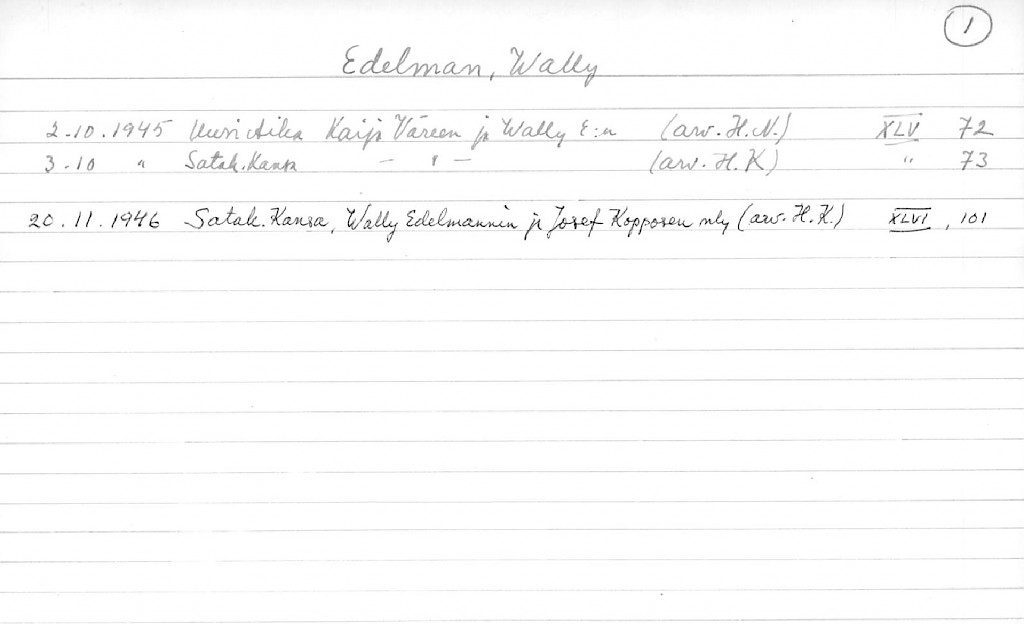 1
Edelman, Wally
2.10.1945 Uusi Aika Kaija Väreen ja Wally E:n (arv. H.N.) XLV 72
3.10 " Satak.Kansa — " — (arv. H.K) " 73
20.11.1946 Satak. Kansa, Wally Edelmannin ja Josef Kopposen nly (arv. H.K.) XLVI, 101